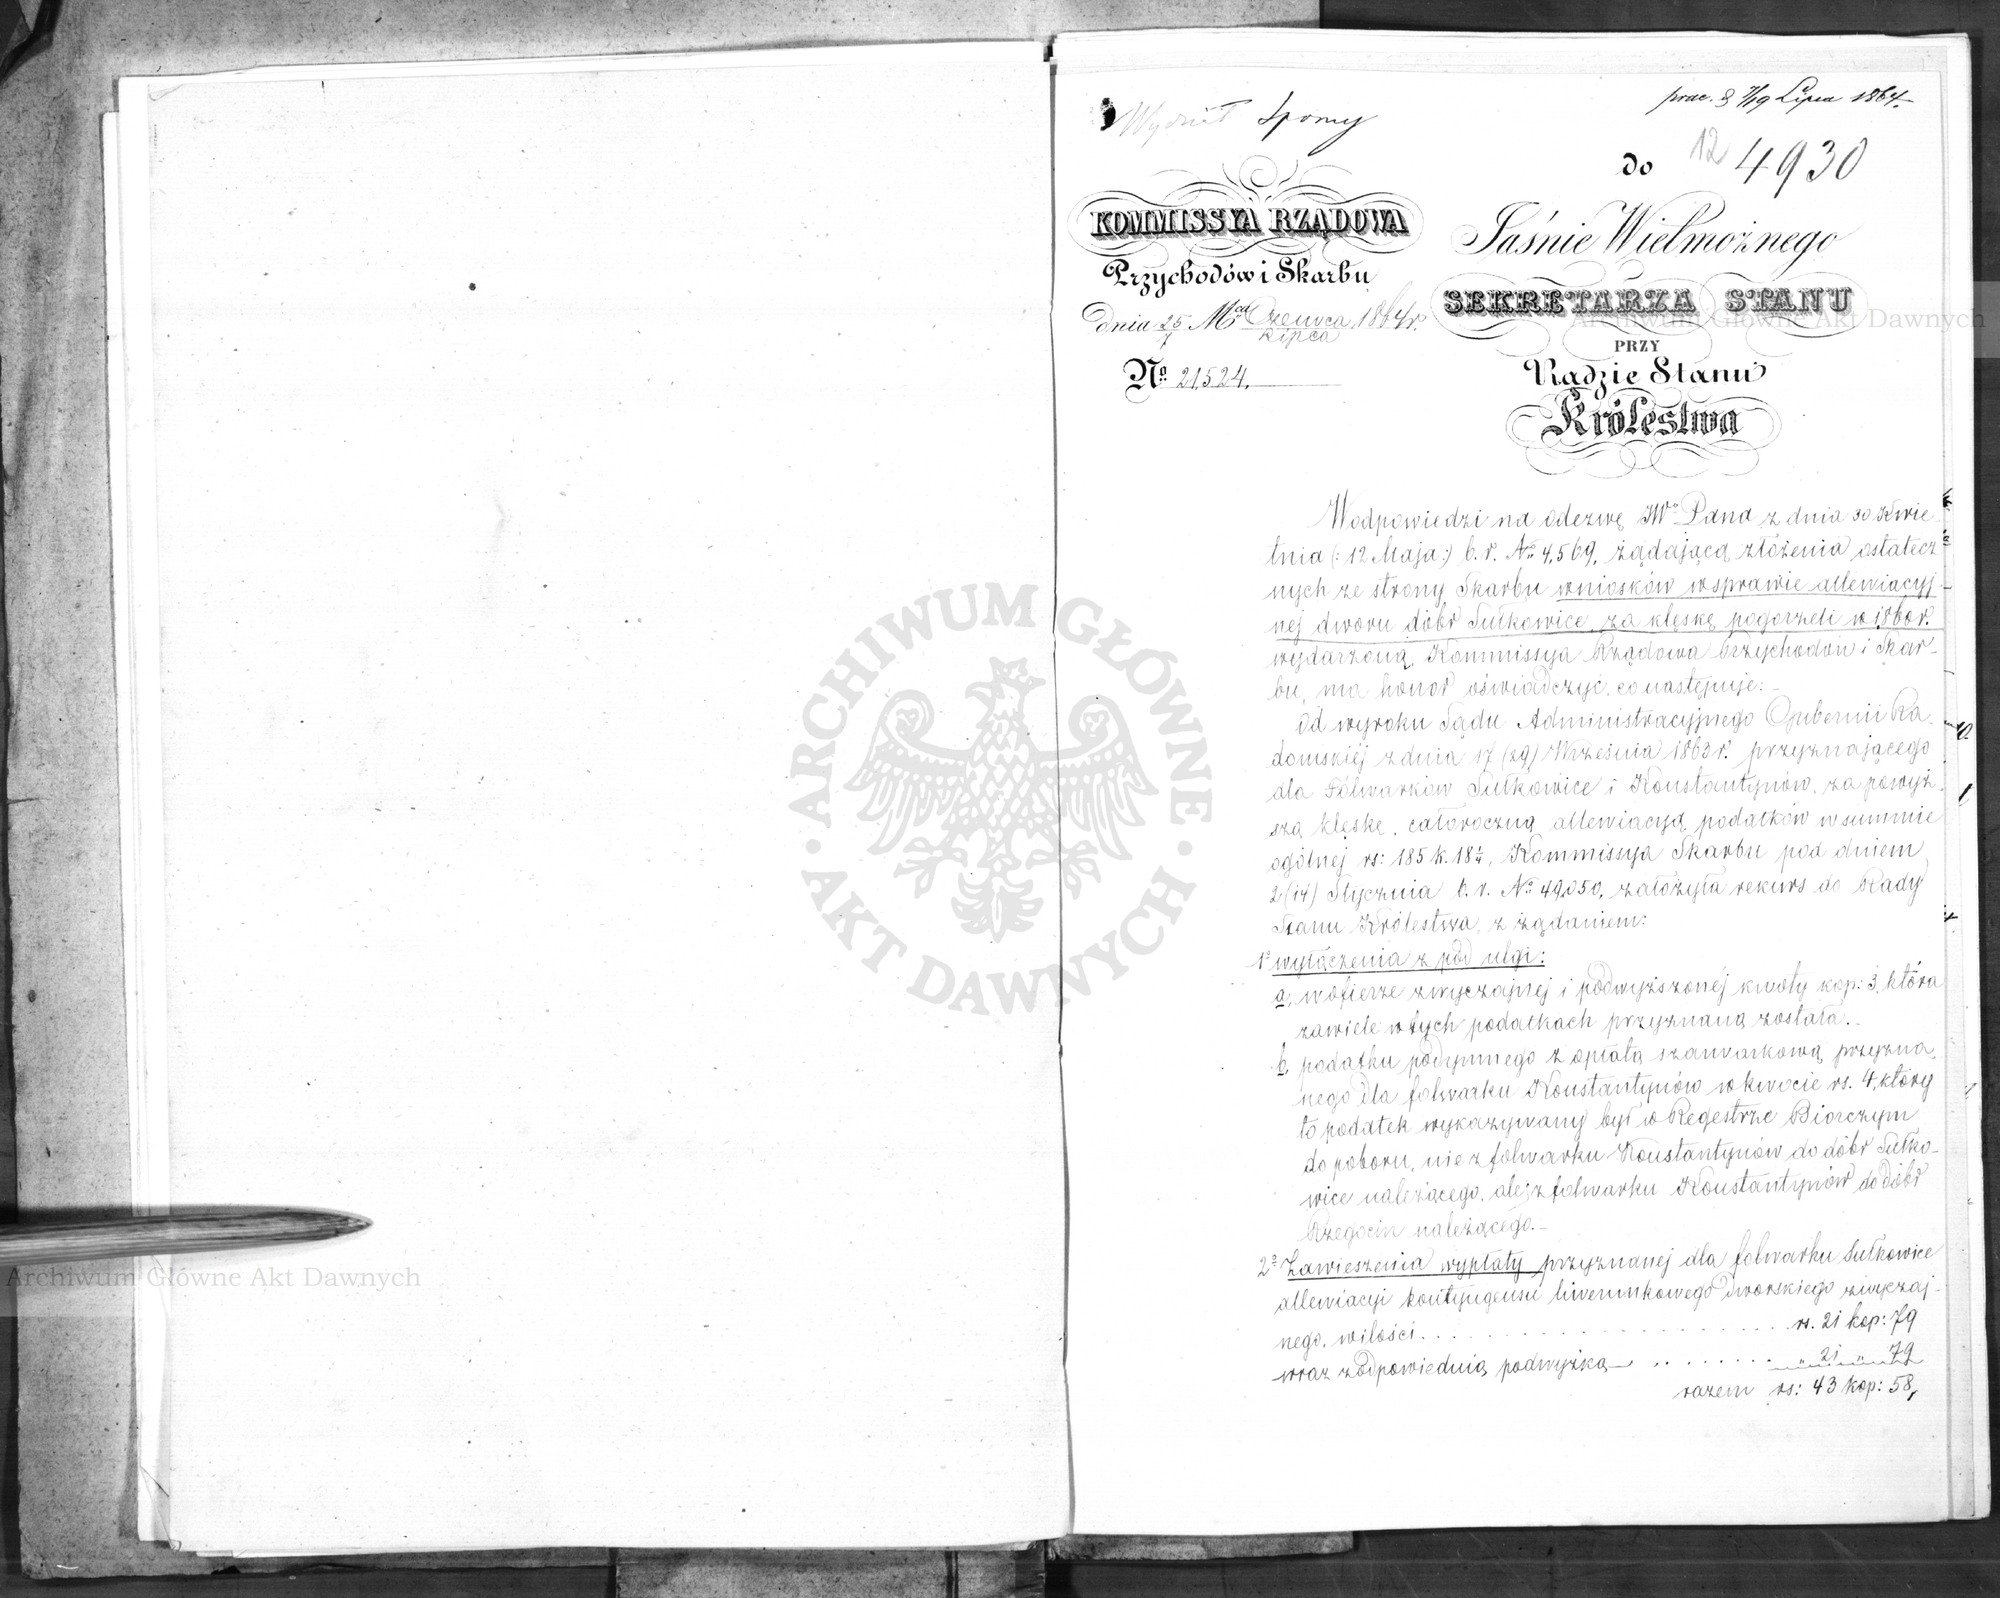 prac. 3 7/19 Lipca 1864.
Wydział Sporny
12 4930
do
KOMMISSYA RZĄDOWA
Przychodów i Skarbu
dnia 25/7 Mca Czerwca/Lipca 1864 r.
No 21524.
Jaśnie Wielmożnego
SEKRETARZA STANU
PRZY
Radzie Stanu
Królestwa
W odpowiedzi na odezwę JWo Pana z dnia 30 Kwie-
tnia (: 12 Maja :) b. r. No 4,569, żądającą złożenia ostatecz
nych ze strony Skarbu wniosków w sprawie allewiacyj
nej dworu dóbr Sułkowice, za klęskę pogorzeli w 1860 r.
wydarzoną, Kommissya Rządowa Przychodów i Skar-
bu, ma honor oświadczyć, co następuje:
Od wyroku Sądu Administracyjnego Gubernii Ra-
domskiéj z dnia 17 (29) Września 1863 r. przyznającego
dla Folwarków Sułkowice i Konstantynów, za powyż-
szą klęskę, całoroczną allewiacyą podatków w summie
ogólnej rs: 185 k. 18¼, Kommissya Skarbu pod dniem
2 (14) Stycznia b. r. No 49,050, założyła rekurs do Rady
Stanu Królestwa, z żądaniem:
1o wyłączenia z pod ulgi:
a, w ofierze zwyczajnej i podwyższonéj kwoty kop: 3, która
zawiele w tych podatkach przyznaną została.
b, podatku podymnego z opłatą szarwarkową przyzna
nego dla folwarku Konstantynów w kwocie rs. 4, który
to podatek wykazywany był w Regestrze Biorczym
do poboru, nie z folwarku Konstantynów do dóbr Sułko-
wice należącego, ale z folwarku Konstantynów do dóbr
Rzegocin należącego.
2o Zawieszenia wypłaty przyznanej dla folwarku Sułkowice
allewiacyi kontyngensu liwerunkowego Dworskiego zwyczaj-
nego, w ilości . . . . . . . . . . rs. 21 kop: 79
wraz z odpowiednią podwyżką . . . . . . " 21 " 79
razem rs: 43 kop: 58,
ARCHIWUM GŁÓWNE
AKT DAWNYCH
Archiwum Główne Akt Dawnych
Archiwum Główne Akt Dawnych